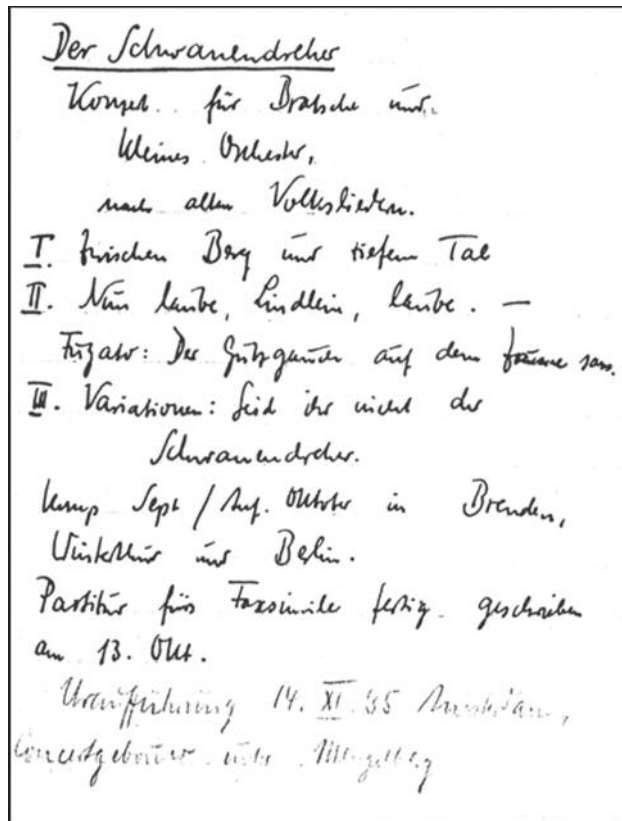 Der Schwanendreher
Konzert für Bratsche und
kleines Orchester,
nach alten Volksliedern.
I. Zwischen Berg und tiefem Tal
II. Nun laube, Lindlein, laube. —
Fugato: Der Gutzgauch auf dem Zaune sass.
III. Variationen: Seid ihr nicht der
Schwanendreher.
komp Sept / Anf. Oktober in Brenden,
Winterthur und Berlin.
Partitur fürs Faxsimile fertig geschrieben
am 13. Okt.
Uraufführung 14. XI. 35 Amsterdam,
Concertgebouw unter Mengelberg